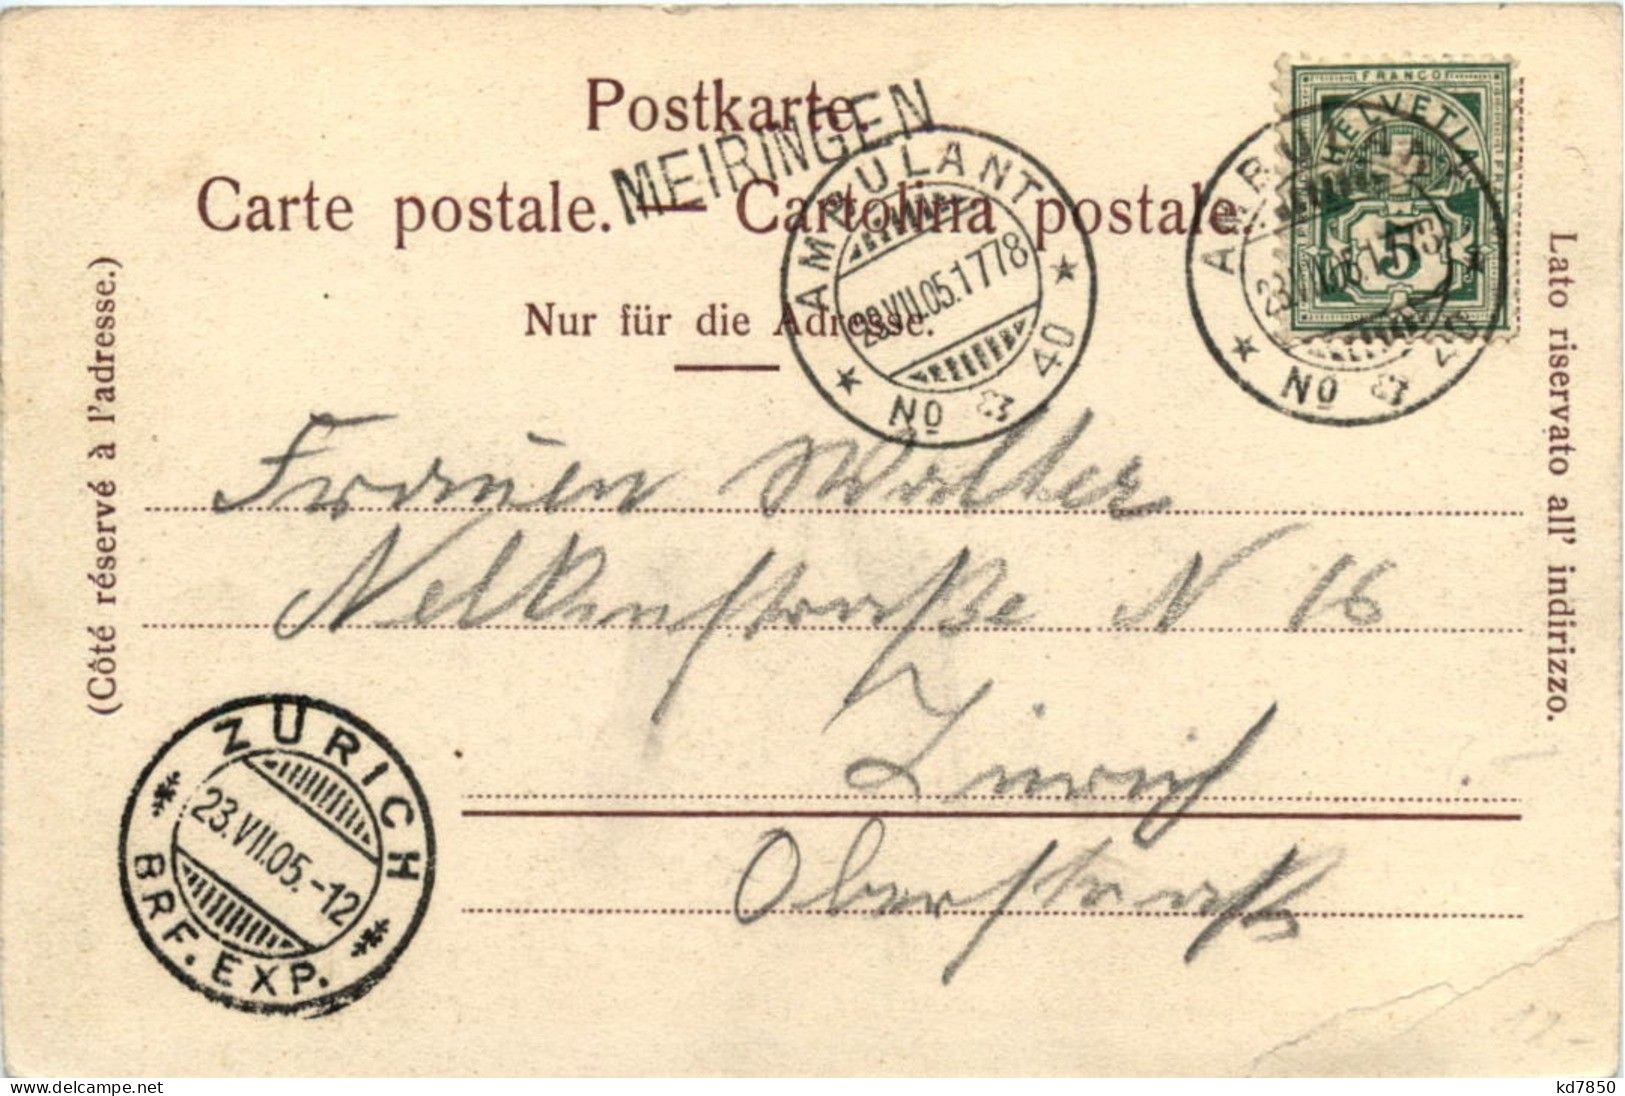 Postkarte.
MEIRINGEN
Carte postale. — Cartolina postale.
Nur für die Adresse.
AMBULANT
23.VII.05.1778
No 40
FRANCO
HELVETIA
5
AMBULANT
23.VII.05.177
No 40
(Côté réservé à l'adresse.)
Lato riservato all' indirizzo.
Walter
Nelkenstraße N 16
Zürich
Oberstraß
ZÜRICH
23.VII.05.-12
BRF. EXP.
12-
kd7850